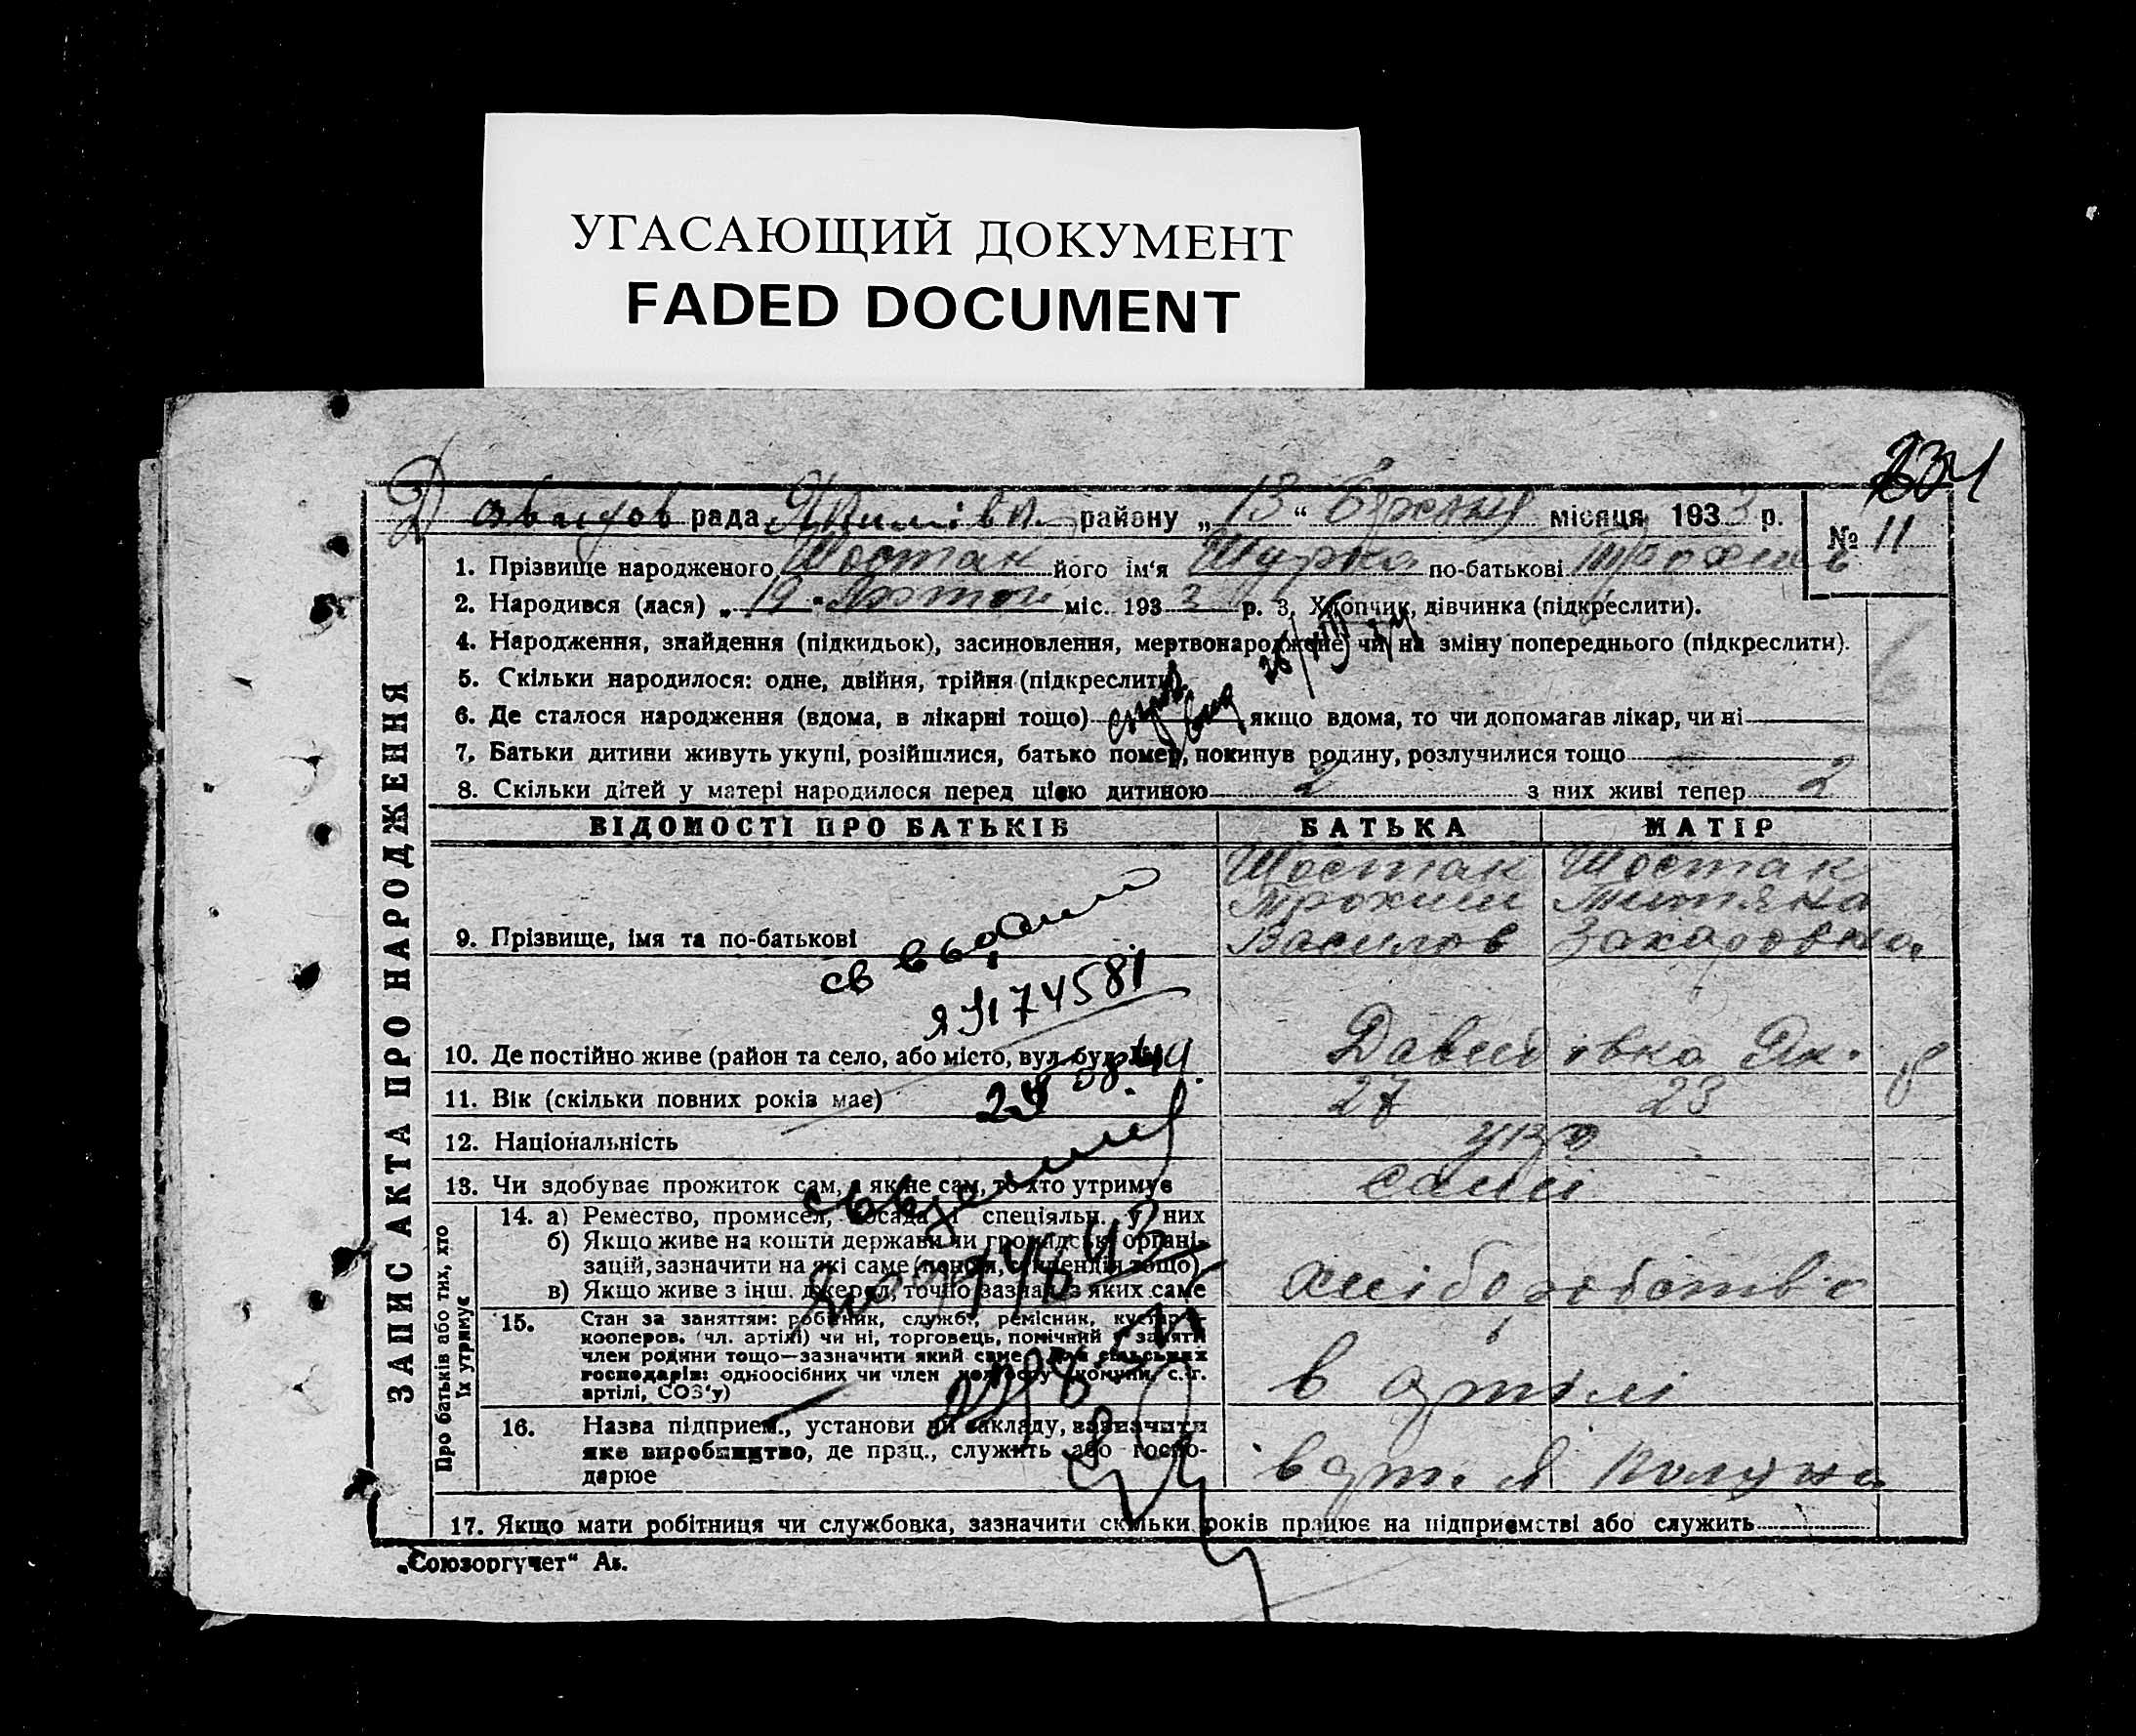 УГАСАЮЩИЙ ДОКУМЕНТ
FADED DOCUMENT
234
Давидов рада Якимівл. району „13“ Березня місяця 1933 р.
№ 11
1. Прізвище народженого Шостак його ім‘я Шурка по-батькові Трохимів
2. Народився (лася) „19“ Лютого міс. 1933 р. 3. Хлопчик, дівчинка (підкреслити).
4. Народження, знайдення (підкидьок), засиновлення, мертвонароджене) чи на зміну попереднього (підкреслити).
5. Скільки народилося: одне, двійня, трійня (підкреслити).
6. Де сталося народження (вдома, в лікарні тощо) якщо вдома, то чи допомагав лікар, чи ні
7. Батьки дитини живуть укупі, розійшлися, батько помер, покинув родину, розлучилися тощо
8. Скільки дітей у матері народилося перед цією дитиною 2 з них живі тепер 2
ВІДОМОСТІ ПРО БАТЬКІВ БАТЬКА МАТІР
Шостак Шостак
Трохим Титяна
9. Прізвище, імя та по-батькові Василов Захаровна
ЯЭ174581
10. Де постійно живе (район та село, або місто, вул. буд. Давидівка Як.
11. Вік (скільки повних років має) 27 23
12. Національність укр
13. Чи здобуває прожиток сам, а як не сам, то хто утримує самі
14. а) Ремество, промисел, посада й спеціяльн. у них
б) Якщо живе на кошти держави чи громадськ. органі-
зацій, зазначити на які саме (пенсія, стипендія тощо)
в) Якщо живе з інш. джерел, точно зазнач. з яких саме хліборобство
15. Стан за заняттям: робітник, служб., ремісник, кустар-
кооперов. (чл. артілі) чи ні, торговець, помічний у занятті
член родини тощо—зазначити який саме. Для сільських
господарів: одноосібних чи член колгоспу (комуни, с.-г.
артілі, СОЗ‘у) в артілі
16. Назва підприєм., установи чи закладу, зазначити
яке виробництво, де прац., служить або госпо-
дарюе в арт.
17. Якщо мати робітниця чи службовка, зазначити скільки років працює на підприємстві або служить
ЗАПИС АКТА ПРО НАРОДЖЕННЯ
Про батьків або тих, хто
їх утримує
„Союзоргучет“ Ав.